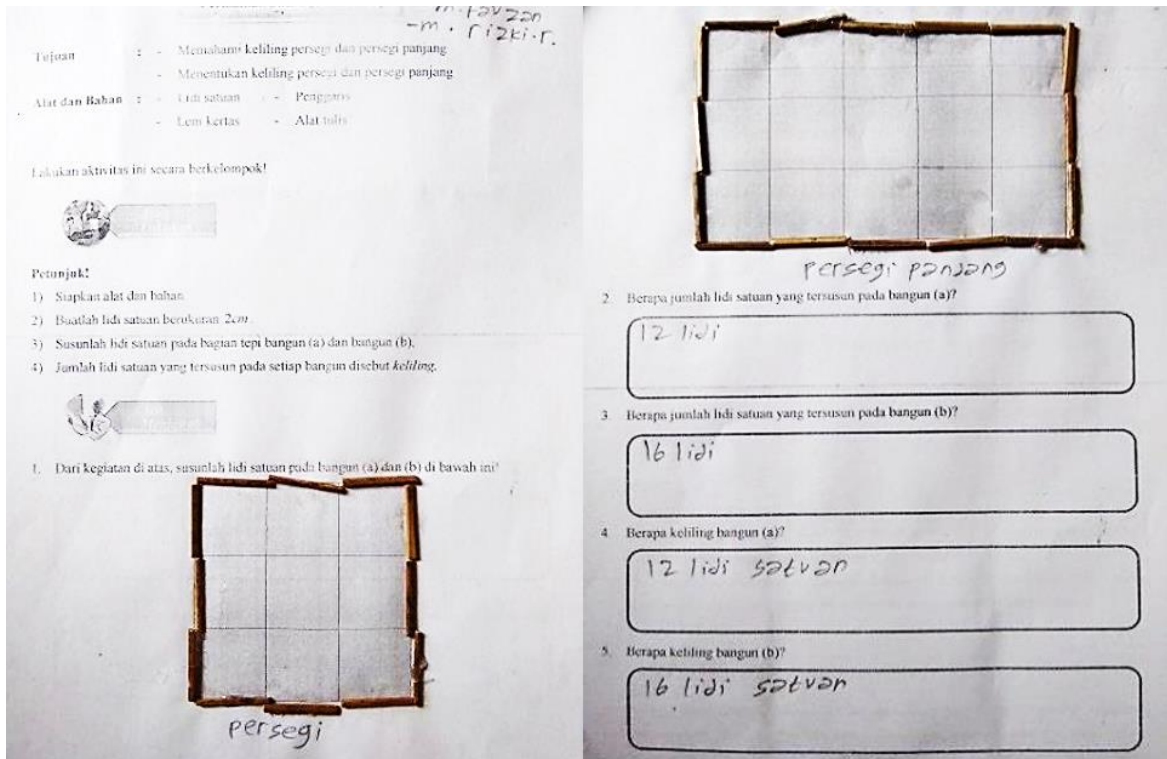 m. fauzan
-m. rizki.r.
Tujuan : - Memahami keliling persegi dan persegi panjang
- Menentukan keliling persegi dan persegi panjang
Alat dan Bahan : - Lidi satuan - Penggaris
- Lem kertas - Alat tulis
Lakukan aktivitas ini secara berkelompok!
Petunjuk!
1) Siapkan alat dan bahan
2) Buatlah lidi satuan berukuran 2cm.
3) Susunlah lidi satuan pada bagian tepi bangun (a) dan bangun (b).
4) Jumlah lidi satuan yang tersusun pada setiap bangun disebut keliling.
1. Dari kegiatan di atas, susunlah lidi satuan pada bangun (a) dan (b) di bawah ini!
persegi
persegi panjang
2. Berapa jumlah lidi satuan yang tersusun pada bangun (a)?
12 lidi
3. Berapa jumlah lidi satuan yang tersusun pada bangun (b)?
16 lidi
4. Berapa keliling bangun (a)?
12 lidi satuan
5. Berapa keliling bangun (b)?
16 lidi satuan